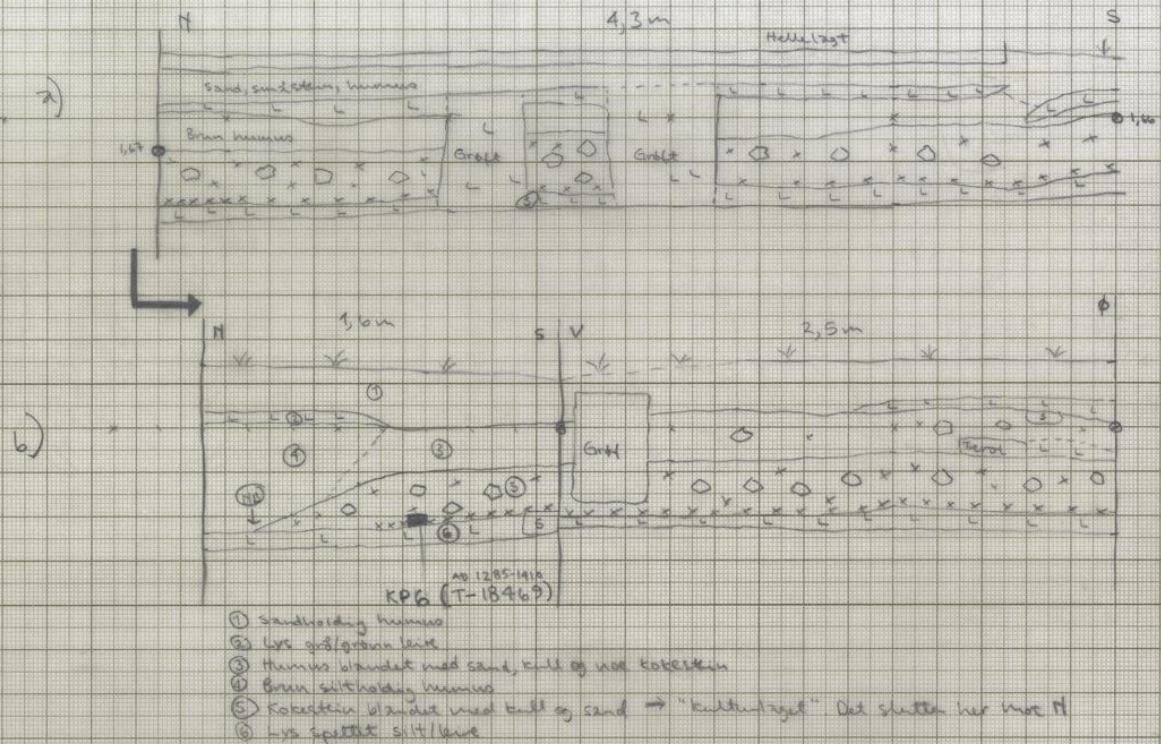 N 4,3 m S
Hellelagt
a)
Sand, småstein, humus
Brun humus
1,67 Grøft Grøft 1,66
5
N 1,6 m S V 2,5 m Ø
b)
1
2
4 3 Grøft 5
5
6 5
KP6 (T-18469)
AD 1285-1410
① Sandholdig humus
② Lys grå/grønn leire
③ Humus blandet med sand, kull og noe kokestein
④ Brun siltholdig humus
⑤ Kokestein blandet med kull og sand → "kulturlaget". Det slutter her mot N
⑥ Lys spettet silt/leire